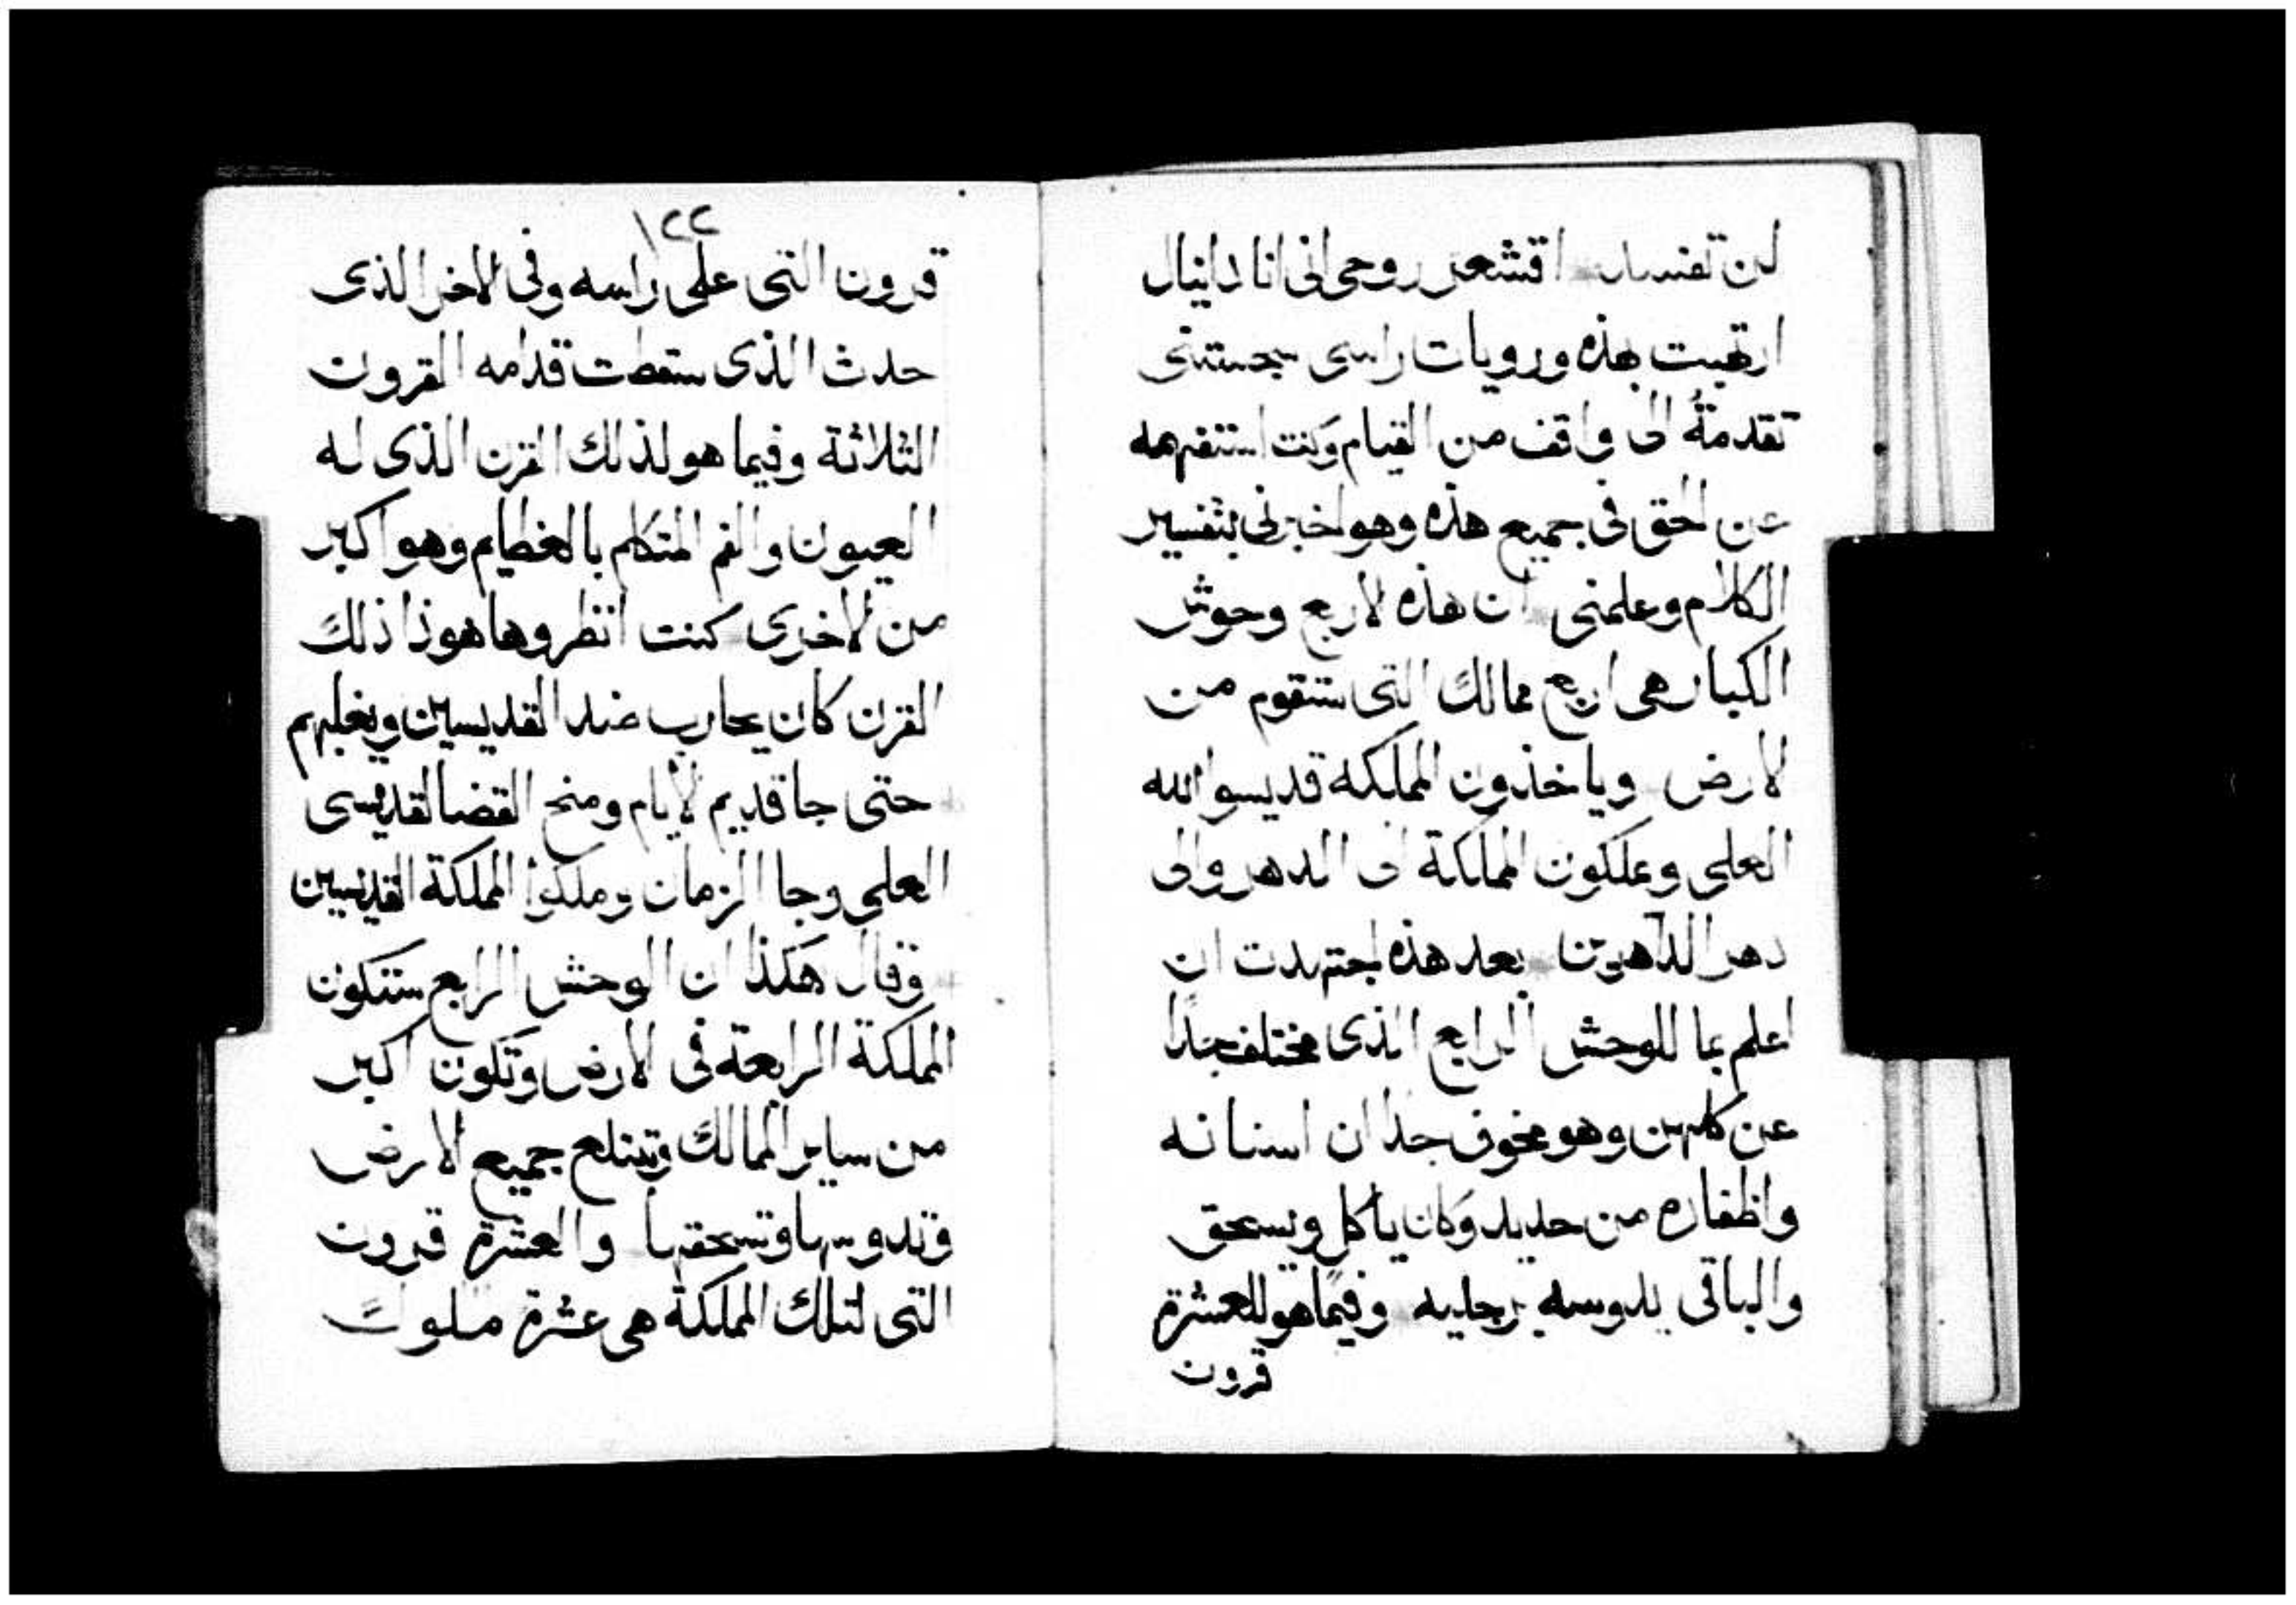 لن تفسد اقشعر روحى انى انا دانيال
ارتهبت بهذه ورويات راسى سجستنى
تقدمتُ الى واقف من القيام وكنت استفهمه
عن الحق فى جميع هذه وهو اخبرنى بتفسير
الكلام وعلمنى ان هذه لاربع وحوش
الكبار هى اربع ممالك التى ستقوم من
لارض وياخذون المملكه قديسوا الله
العلى ويملكون المملكة الى الدهر والى
دهر الداهرين بعد هذه اجتهدت ان
اعلم بما للوحش الرابع الذى مختلف جدًا
عن كلهن وهو مخوف جدا ان اسنانه
واظفاره من حديد وكان ياكل ويسحق
والباقى يدوسه برجليه وفيما هو للعشرة
قرون
١٢٢
قرون التى على راسه وفى لاخر الذى
حدث الذى سقطت قدامه القرون
الثلاثة وفيما هو لذلك القرن الذى له
العيون والفم المتكلم بالعظايم وهو اكبر
من لاخرى كنت انظر وها هوذا ذلك
القرن كان يحارب ضد القديسين ويغلبهم
حتى جا قديم لايام ومنح القضا لقديسى
العلى وجا الزمان وملكوا المملكة القديسين
وقال هكذا ان الوحش الرابع ستكون
المملكة الرابعة فى لارض وتكون اكبر
من ساير الممالك وتبتلع جميع الارض
وتدوسها وتسحقها والعشرة قرون
التى لتلك المملكة هى عشرة ملوك